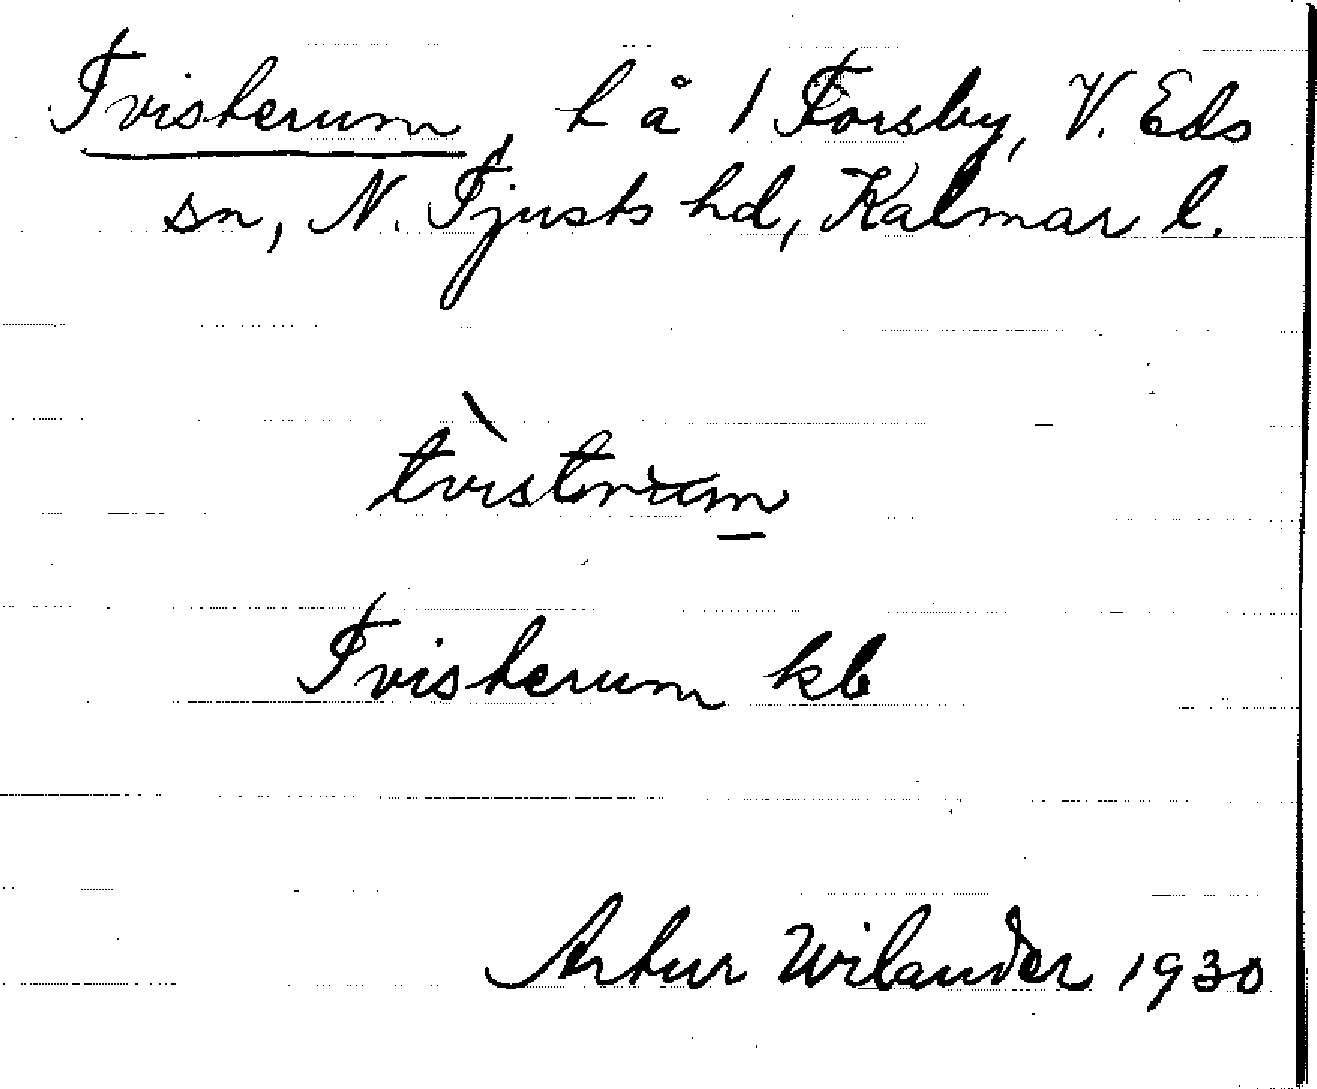 Tvisterum, t å 1 Forsby, V. Eds
sn, N. Tjusts hd, Kalmar l.
tvìsterum
Tvisterum kb
Artur Wilander 1930